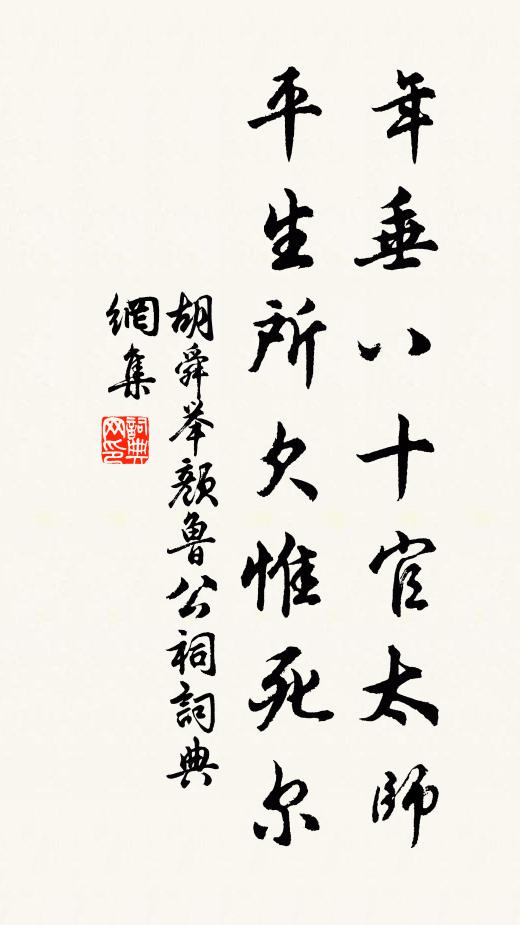 年垂八十官太師
平生所欠惟死尔
胡舜举顏魯公祠詞典
網集
詞典網印